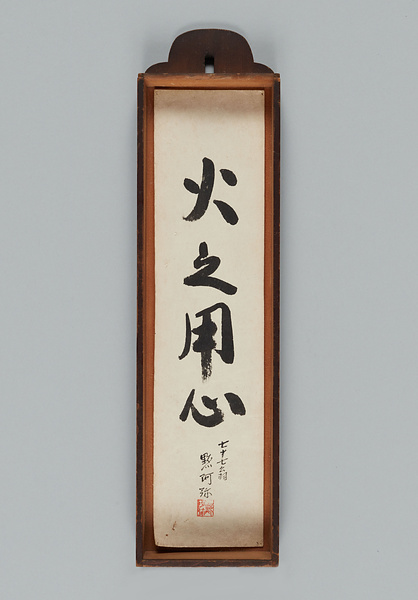 火之用心
七十七翁
默阿弥